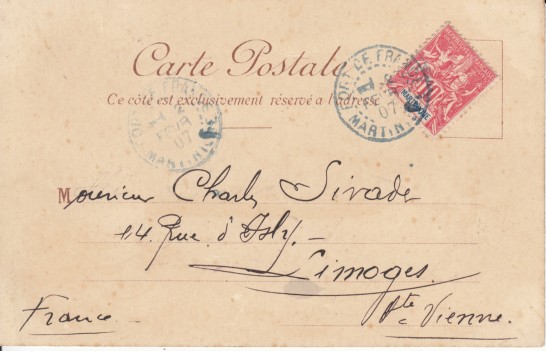 Carte Postale
Ce côté est exclusivement réservé à l'adresse
FORT DE FRANCE
FEVR
07
MARTINIQUE
FORT DE FRANCE
07
MARTINIQUE
10
MARTINIQUE
Monsieur Charles Sivade
14. Rue d'Isly.
Limoges
Hte Vienne.
France